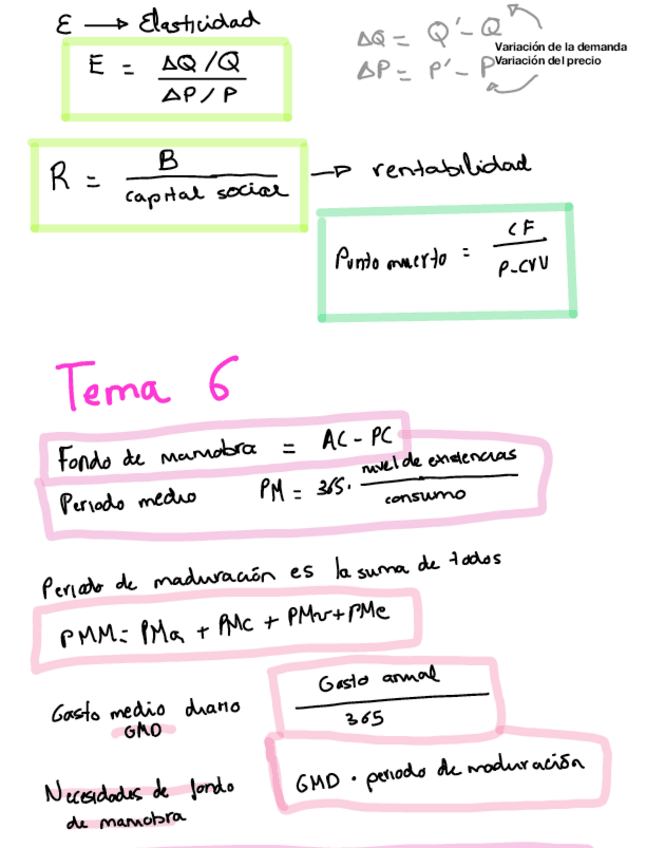 ε → Elasticidad
E = ΔQ/Q / ΔP/P
ΔQ = Q' - Q
Variación de la demanda
ΔP = P' - P
Variación del precio
R = B / capital social → rentabilidad
Punto muerto = CF / P-CVU
Tema 6
Fondo de maniobra = AC - PC
Periodo medio PM = 365 · nivel de existencias / consumo
Periodo de maduración es la suma de todos
PMM = PMa + PMc + PMv + PMe
Gasto medio diario
GMD
Gasto annal / 365
Necesidades de fondo
de maniobra
GMD · periodo de maduración